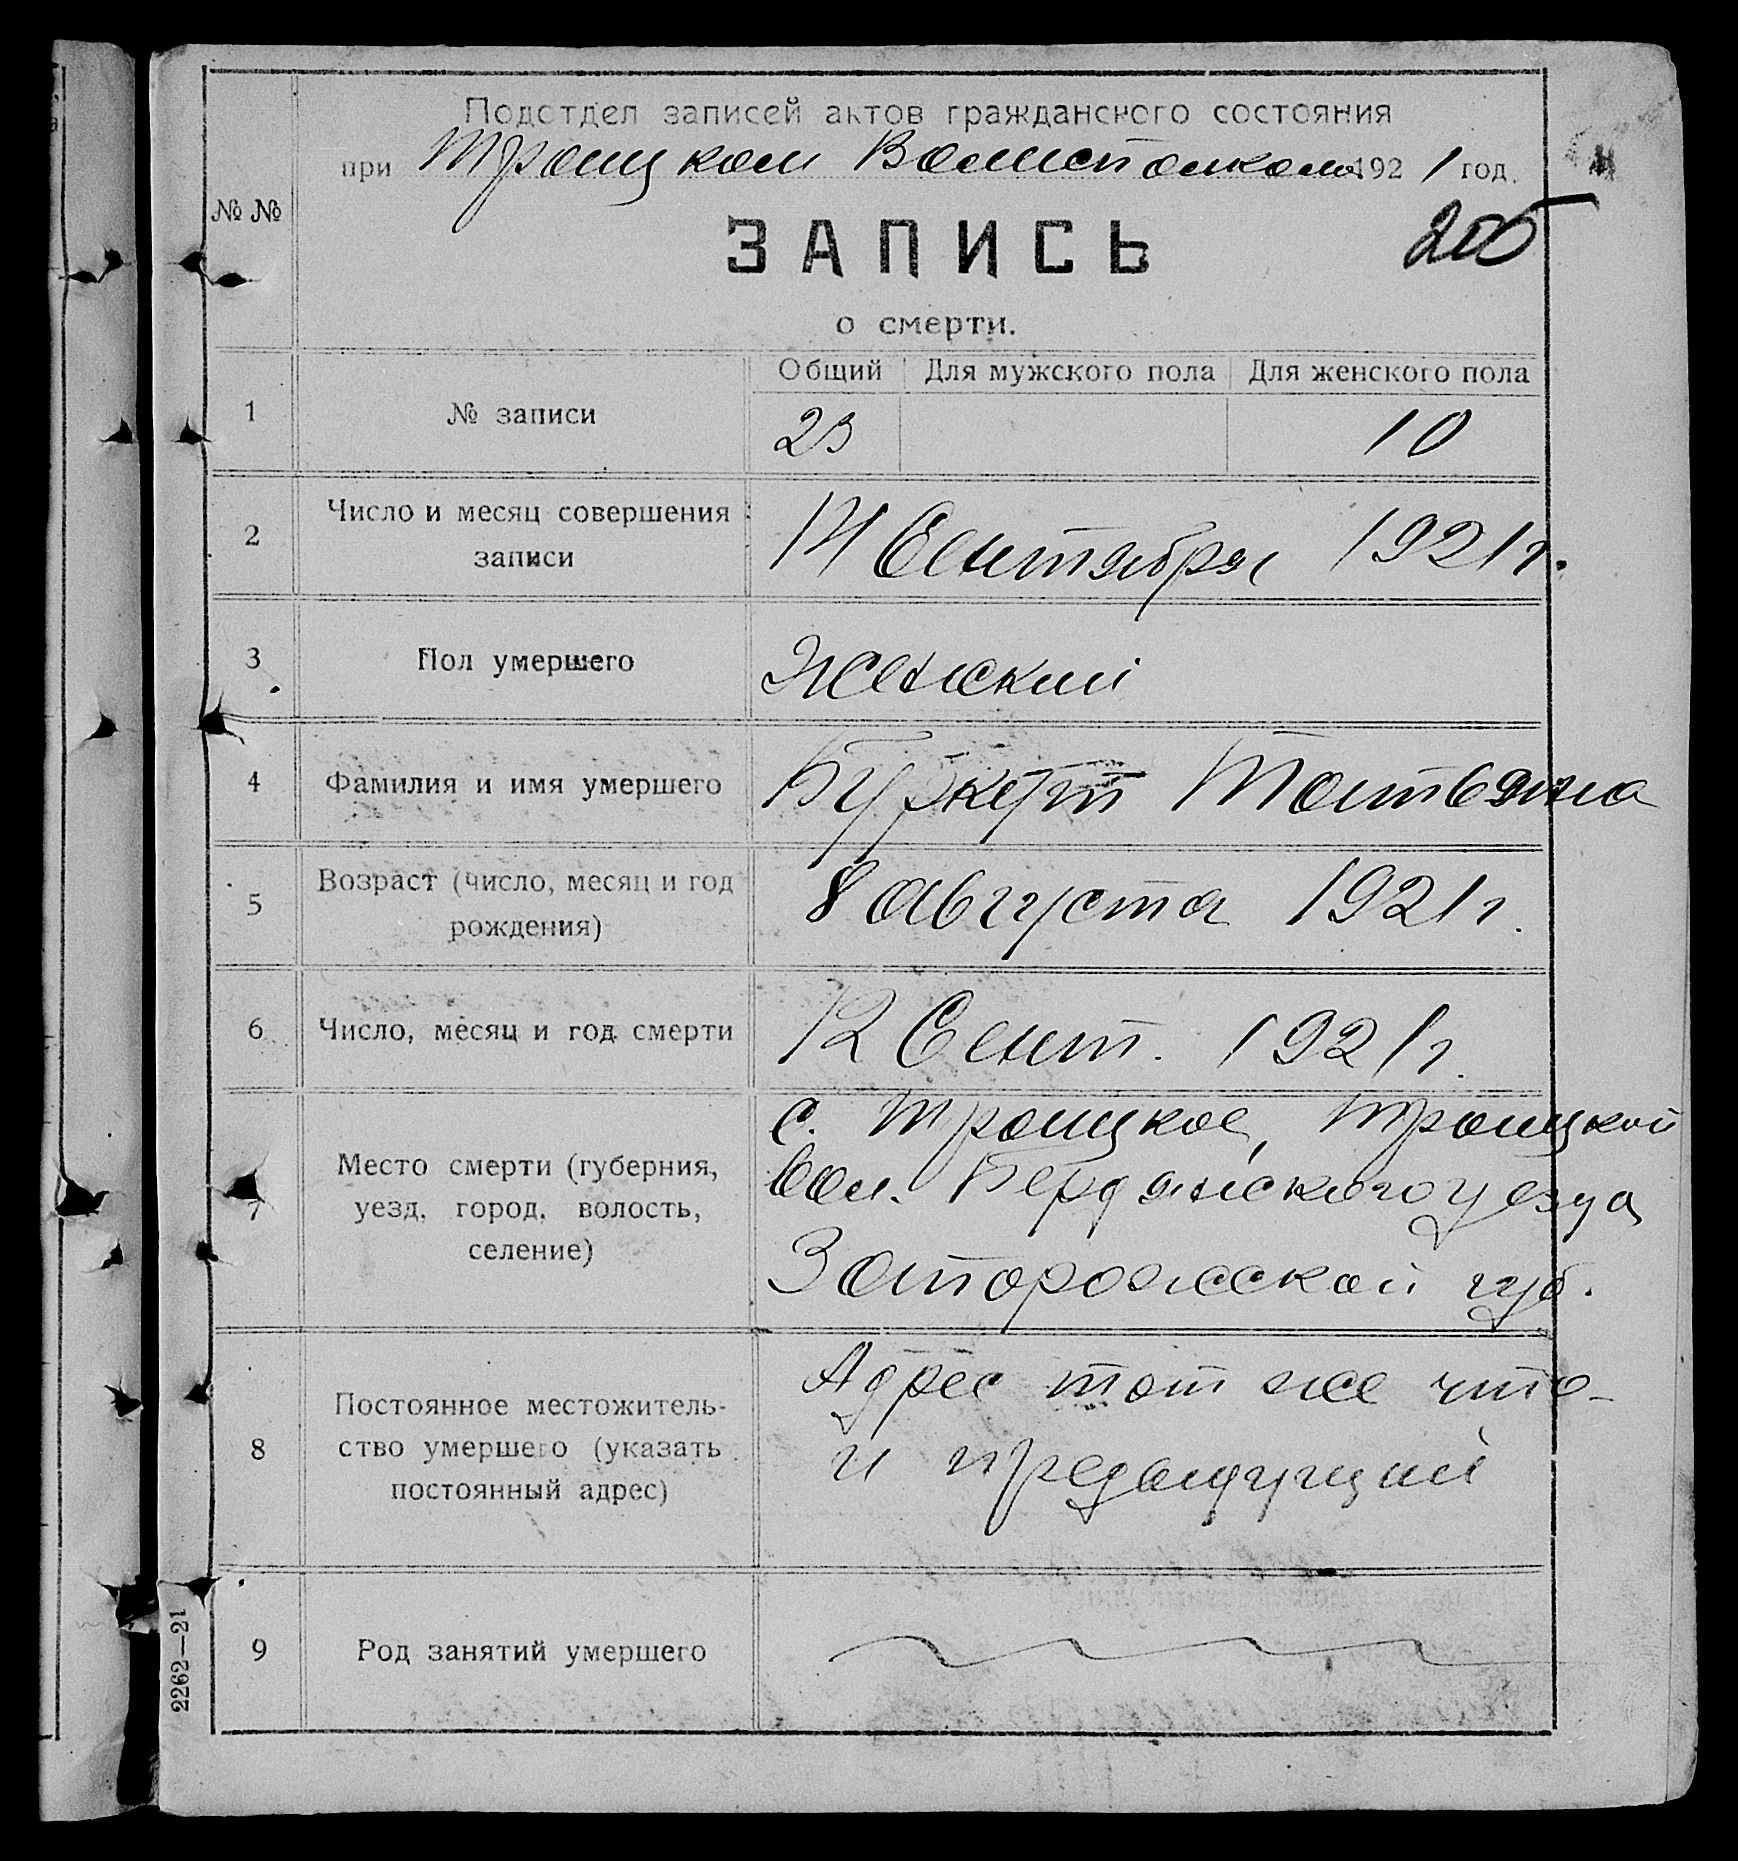 Подотдел записей актов гражданского состояния
при Троицком Волисполкоме 1921 год.
№ №
205
ЗАПИСЬ
о смерти.
Общий Для мужского пола Для женского пола
1 № записи 23 10
2 Число и месяц совершения записи 14 Сентября 1921 г.
3 Пол умершего Женский
4 Фамилия и имя умершего Буркут Татьяна
5 Возраст (число, месяц и год рождения) 8 августа 1921 г.
6 Число, месяц и год смерти 12 Сент. 1921 г.
7 Место смерти (губерния, уезд, город, волость, селение)
с. Троицкое, Троицкой
вол. Бердянского уезда
Запорожской губ.
8 Постоянное местожитель-
ство умершего (указать
постоянный адрес)
Адрес тот же что
и предыдущий
9 Род занятий умершего
2262—21